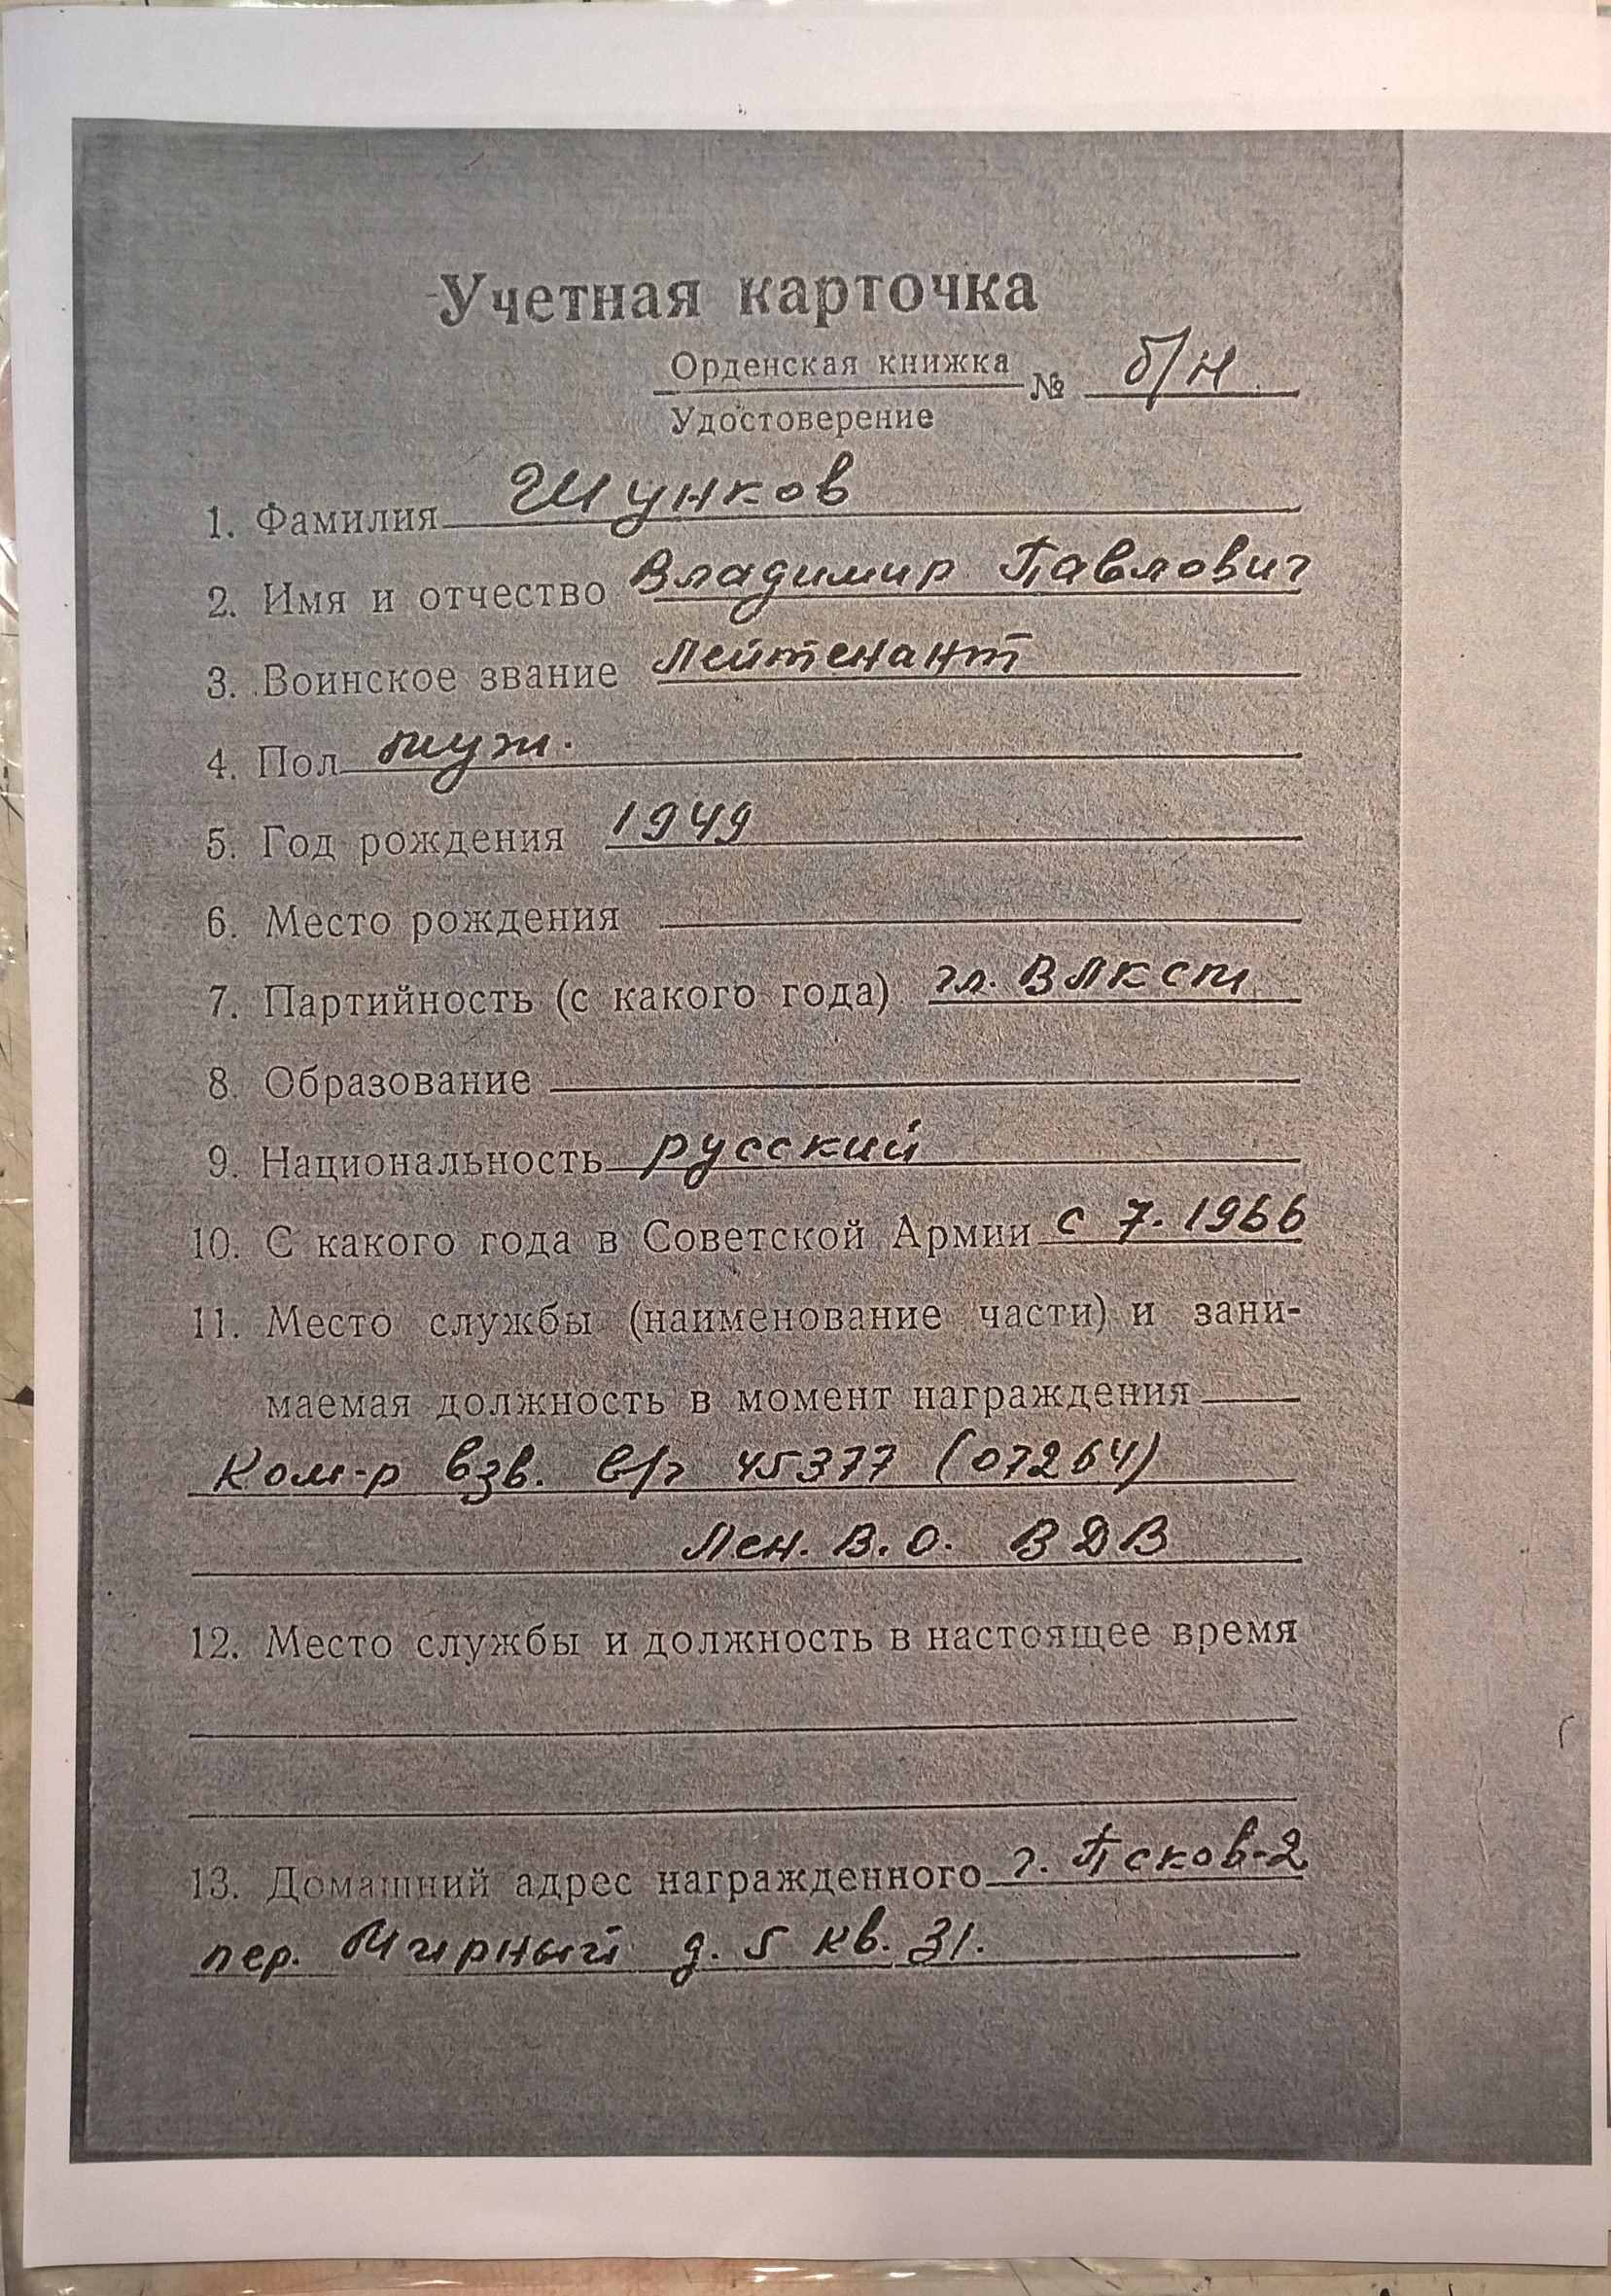 Учетная карточка
Орденская книжка
№ б/н
Удостоверение
1. Фамилия Шунков
2. Имя и отчество Владимир Павлович
3. Воинское звание Лейтенант
4. Пол муж.
5. Год рождения 1949
6. Место рождения
7. Партийность (с какого года) чл. ВЛКСМ
8. Образование
9. Национальность русский
10. С какого года в Советской Армии с 7. 1966
11. Место службы (наименование части) и зани-
маемая должность в момент награждения
Ком-р взв. в/ч 45377 (07264)
Лен. В. О. ВДВ
12. Место службы и должность в настоящее время
13. Домашний адрес награжденного г. Псков-2
пер. Мирный д. 5 кв. 31.